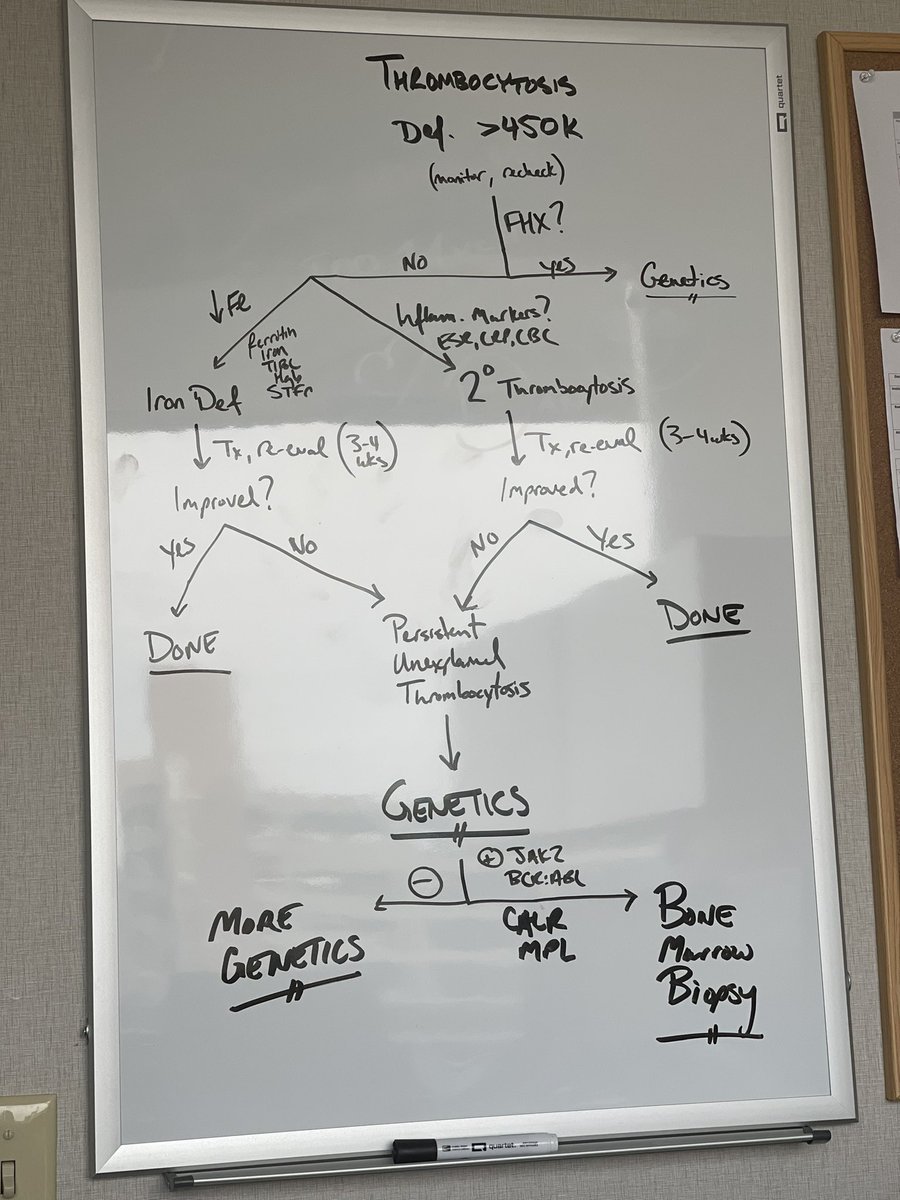 THROMBOCYTOSIS
quartet
Def. >450K
(monitor, recheck)
FHX?
NO
yes
Genetics
↓Fe
Inflam. Markers?
ESR, CRP, CBC
Ferritin
Iron
TIBC
Hgb
STFr
Iron Def
2° Thrombocytosis
Tx, re-eval (3-4 wks)
Tx, re-eval (3-4 wks)
Improved?
Improved?
Yes
No
NO
Yes
DONE
DONE
Persistent
Unexplained
Thrombocytosis
GENETICS
⊖
⊕ JAK2
BCR:ABL
CALR
MPL
MORE
GENETICS
BONE
Marrow
Biopsy
quartet